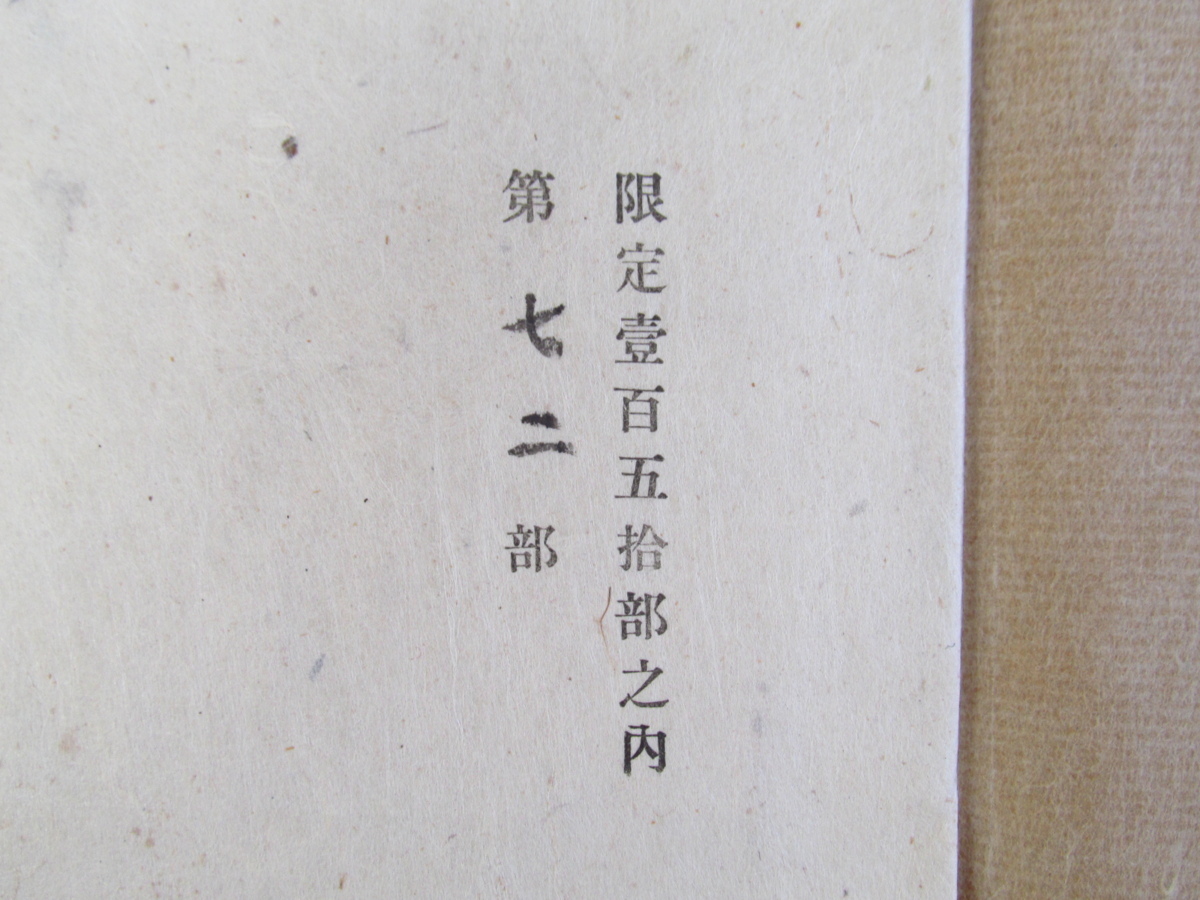 限定壹百五拾部之內
第七二部